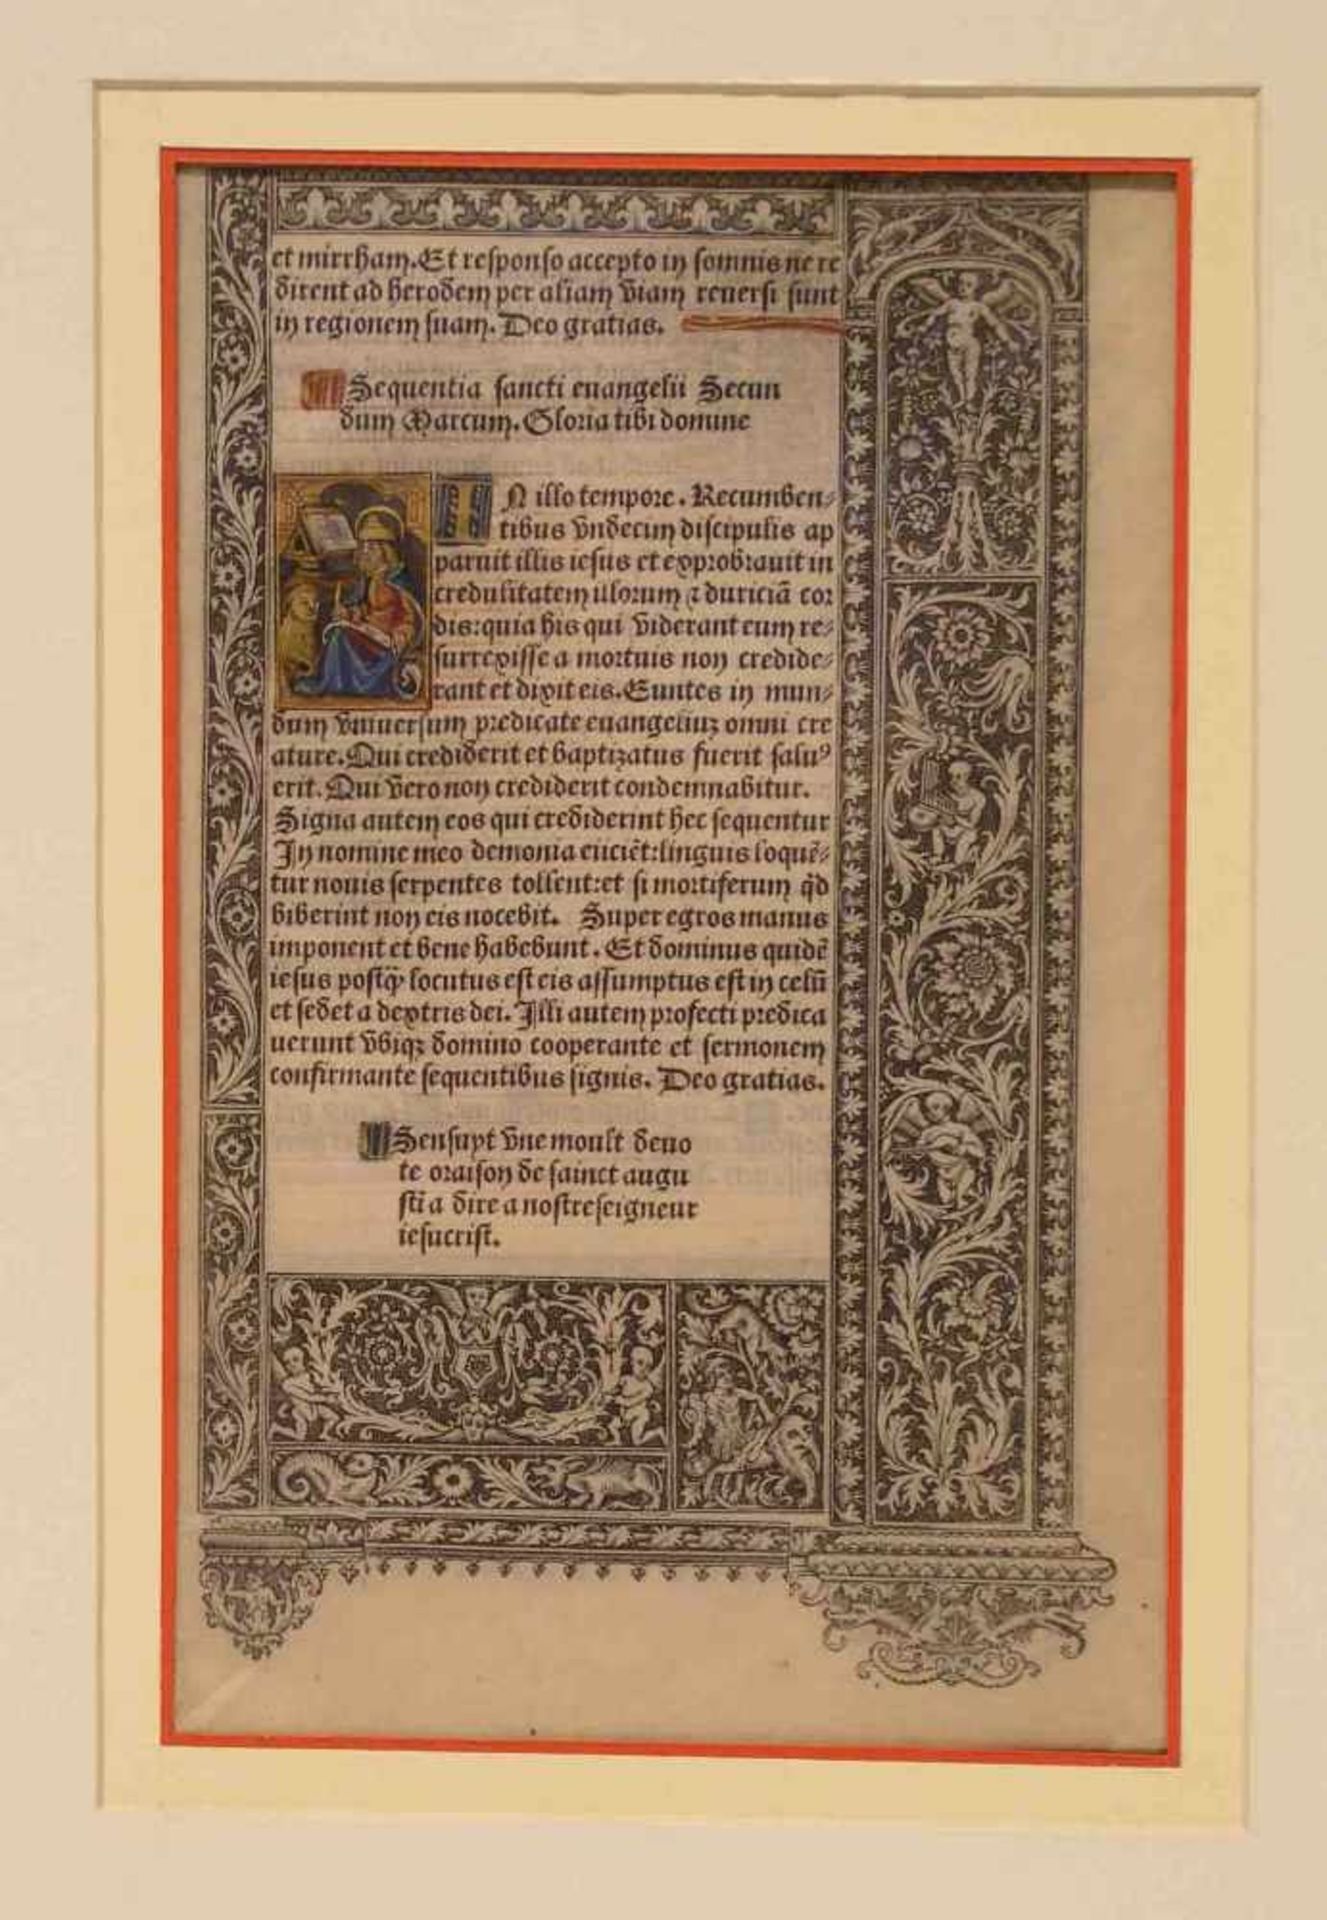 et mirrham. Et responso accepto in somnis ne re
dirent ad herodem per aliam viam reuersi sunt
in regionem suam. Deo gratias.
Sequentia sancti euangelii Secun
dum Marcum. Gloria tibi domine
IN illo tempore. Recumben-
tibus vndecim discipulis ap
paruit illis iesus et exprobrauit in
credulitatem illorum ⁊ duriciā cor
dis: quia his qui viderant eum re-
surrexisse a mortuis non credide-
rant et dixit eis. Euntes in mun-
dum vniuersum predicate euangeliuꝫ omni cre
ature. Qui crediderit et baptizatus fuerit saluꝰ
erit. Qui vero non crediderit condemnabitur.
Signa autem eos qui crediderint hec sequentur
In nomine meo demonia eiiciēt: linguis loquē-
tur nouis serpentes tollent: et si mortiferum q̄d
biberint non eis nocebit. Super egros manus
imponent et bene habebunt. Et dominus quidē
iesus postq̄ locutus est eis assumptus est in celū
et sedet a dextris dei. Illi autem profecti predica
uerunt vbiqꝫ domino cooperante et sermonem
confirmante sequentibus signis. Deo gratias.
Sensuyt vne moult deuo
te oraison de sainct augu
stī a dire a nostre seigneur
iesucrist.